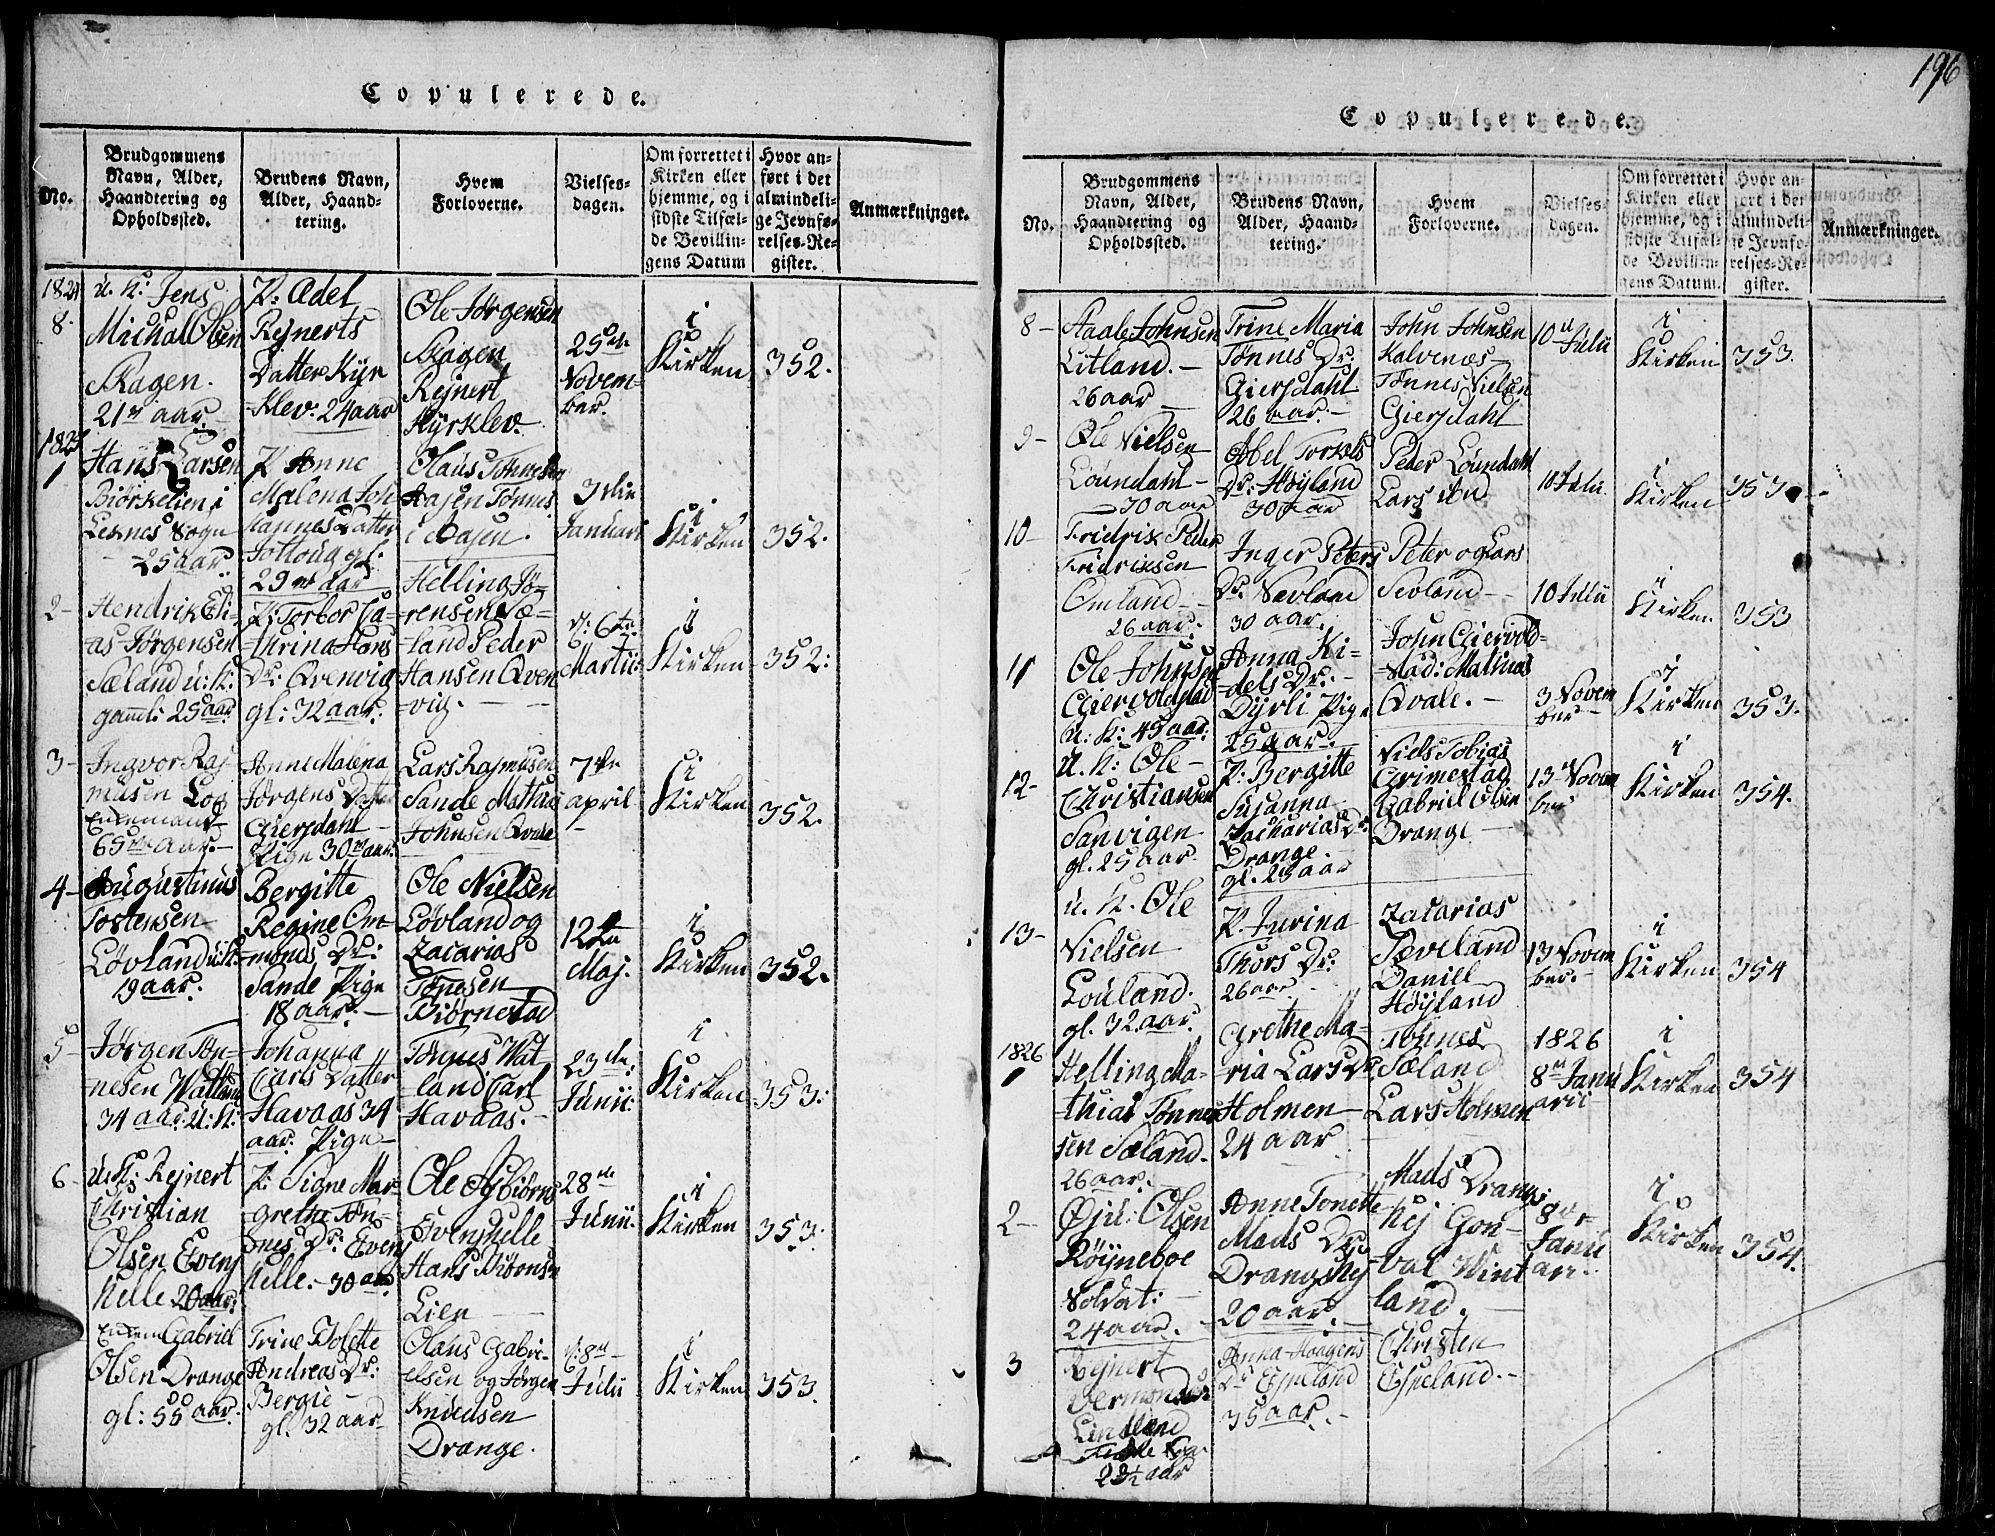 196
Copulerede.
No.
Brudgommens
Navn, Alder,
Haandtering og
Opholdssted.
Brudens Navn,
Alder, Haand-
tering.
Hvem
Forloverne.
Vielses-
dagen.
Om forrettet i
Kirken eller
hjemme, og i
sidste Tilfæl-
de Bevillin-
gens Datum
Hvor an-
ført i det
almindeli-
ge Jevnfø-
relses-Re-
gister.
Anmærkninger.
1824
8.
u. K: Jens
Michal Olsen
Skagen.
21 aar.
P: Adel
Rejnerts
Datter Kyr
Klev: 24 aar
Ole Jörgensen
Skagen
Rejnert
Kyrklev.
25de
Novem-
ber.
i
Kirken
352.
1825
1
Hans Larsen
Biörkelien i
Sogn
25 aar.
P Anne
Malena Joh-
annes Datter
gl:
29 aar
Olaus Tönnesen
Aasen Tönnes
i Aasen.
3die
Januari
i
Kirken
352.
2-
Hendrik Eli-
as Jörgensen
Sæland u: K:
gaml: 25 aar.
P: Torbor Ca-
thrina Hans
Dr: Qvenvig
gl: 32 aar.
Helling Jö-
rensen Sæ-
land Peder
Hansen Qven
vig.
d: 6te
Martii
i
Kirken
352:
3-
Ingvor Ras
musen Log
Enkemand
65 aar.
Anne Malena
Jörgens Datter
Giersdahl
Pige 30 aar.
Lars Rasmusen
Sande Mathias
Johnsen Qvale
7de
april
i
Kirken
352.
4-
Augustinus
Tostensen
Lövland u: K.
19 aar.
Bergitte
Regine Om-
monds Dr:
Sande Pige
18 aar.
Ole Nielsen
Lövland og
Zacarias
Tönesen
Biörnestad
12te
Maj.
i
Kirken
352.
5-
Jörgen Tön-
nesen Watland
34 aar. u: K:
Johanna
Carls Datter
Havaas 34
aar. Pige
Tönnes Wat-
land Carl
Havaas.
23de
Junii:
i
Kirken
353:
6-
u. K: Rejnert
Christian
Olsen Evens
helle 20 aar:
P: Signe Mar-
grethe Tön-
nes Dr: Evens
helle. 30 aar.
Ole Asbiörns
Evenshelle
Hans Biönsen
Lien
28de
Junii.
i
Kirken
353:
Gabriel
Olsen Drange
gl: 55 aar.
Trine Bolette
Andreas Dr:
Bergie
gl. 32 aar
Olaus Gabri-
elsen og Jörgen
Knudsen
Drange.
d: 8de
Julii
i
Kirken
353.
Copulerede.
No.
Brudgommens
Navn, Alder,
Haandtering og
Opholdssted.
Brudens Navn,
Alder, Haand-
tering.
Hvem
Forloverne.
Vielses-
dagen.
Om forrettet i
Kirken eller
hjemme, og i
sidste Tilfæl-
de Bevillin-
gens Datum.
Hvor an-
ført i det
almindeli-
ge Jevnfø-
relses-Re-
gister.
Anmærkninger.
8-
Staale Johnsen
Litland.
26 aar
Trine Maria
Tönnes Dr.
Giersdahl
26 aar.
John Johnsen
Kalvenæs
Tönnes Nielsen
Giersdahl
10d Julii
i
Kirken
353.
9-
Ole Nielsen
Loundahl
30 aar
Abel Torkels
Dr: Höyland
30 aar
Peder Loundahl
Lars ibd
10 Julii
i
Kirken
353.
10-
Fridrik Peder
Fridriksen
Omland
26 aar.
Inger Peters
Dr: Sevland
30 aar.
Peter og Lars
Sevland
10 Julii
i
Kirken
353
11
Ole Johnsen
Giervoldstad
u: K: 45 aar:
Anna Ki-
dels Dr.
Dyrli Pige
25 aar.
John Giervold-
stad: Mathias
Qvale.
3 Novem
ber
i
Kirken
353.
12-
u. K: Ole
Christiansen
Sanvigen
gl. 25 aar.
P: Bergitte
Susanna
Zacharias Dr:
Drange
gl. 25 aar
Niels Tobias
Grimestad
Gabriel Olsen
Drange
13 Novem
ber
i
Kirken
354.
13-
u. K. Ole
Nielsen
Louland.
gl. 32 aar.
P. Jurina
Thors Dr:
26 aar
Zacarias
Seveland
Daniel
Höyland
13 Novem
ber.
i
Kirken
354
1826
1
Helling Ma-
thias Tönnes
sen Sæland.
26 aar.
Grethe Ma-
ria Lars Dr
Holmen
24 aar
Tönnes
Sæland
Lars Holmen
1826
8de Janu
arii
i
Kirken
354
2-
Öju: Olsen
Röyneboe
Soldat:
24 aar.
Anne Tonette
Mads Dr
Drangshej
20 aar.
Mads Drangs
hej Gon-
val Wint
land.
8de
Janu
ari.
i
Kirken
354.
3
Rejnert
Lindland
23½ aar
Anna Haagens
Dr Espeland
35 aar.
Christen
Espeland.